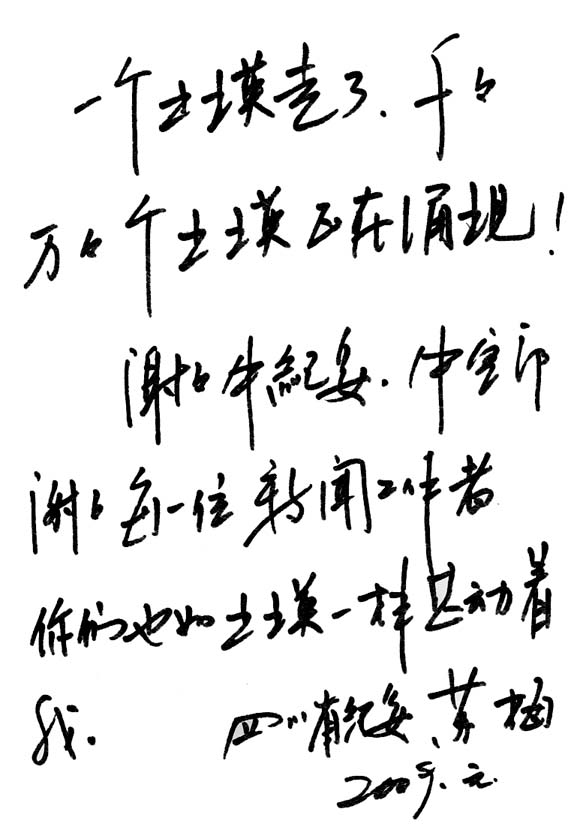 一个王瑛走了、千々
万々个王瑛正在涌现！
谢々中紀委、中宣部
谢々每一位新闻工作者
你们也如王瑛一样感动着
我。 四川省纪委、
2009.元.